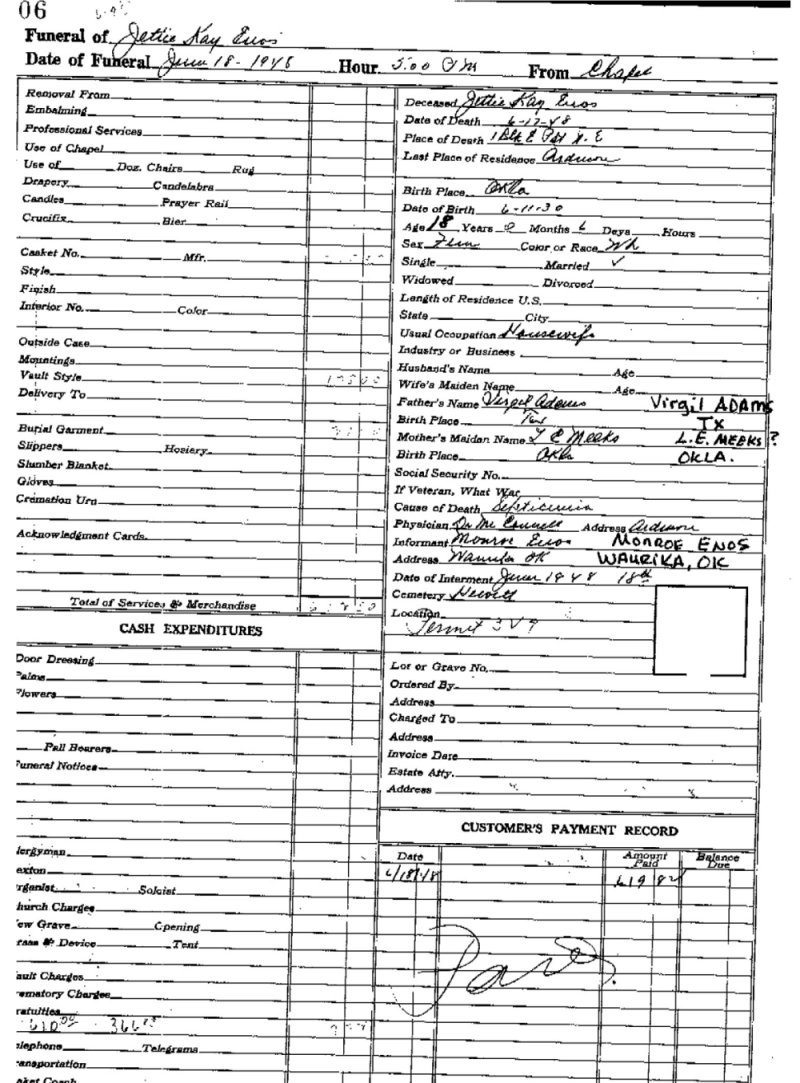 06
Funeral of Jettie Kay Enos
Date of Funeral June 18 - 1948 Hour 3:00 PM From Chapel
Removal From
Embalming
Professional Services
Use of Chapel
Use of Doz. Chairs Rug
Drapery Candelabra
Candles Prayer Rail
Crucifix Bier
Casket No. Mfr.
Style
Finish
Interior No. Color
Outside Case
Mountings
Vault Style
Delivery To
Burial Garment
Slippers Hosiery
Slumber Blanket
Gloves
Cremation Urn
Acknowledgment Cards
Total of Services & Merchandise
CASH EXPENDITURES
Door Dressing
Palms
Flowers
Pall Bearers
Funeral Notices
lergyman
exton
rganist Soloist
hurch Charges
ew Grave Opening
rass & Device Tent
ault Charges
rematory Charges
ratuities
610.00 366
elephone Telegrams
ransportation
asket Coach
Deceased Jettie Kay Enos
Date of Death 6-17-48
Place of Death 1 Blk E
Last Place of Residence Ardmore
Birth Place Okla
Date of Birth 6-11-30
Age 18 Years 0 Months 6 Days Hours
Sex Fem Color or Race Wh
Single Married ✓
Widowed Divorced
Length of Residence U.S.
State City
Usual Occupation Housewife
Industry or Business
Husband's Name Age
Wife's Maiden Name Age
Father's Name Virgil Adams Virgil ADAMS
Birth Place Tex TX
Mother's Maiden Name L E Meeks L.E. MEEKS?
Birth Place Okla OKLA.
Social Security No.
If Veteran, What War
Cause of Death Septicemia
Physician Dr Mc Connell Address Ardmore
Informant Monroe Enos MONROE ENOS
Address Waurika OK WAURIKA, OK
Date of Interment June 1948 18th
Cemetery Hewitt
Location
Permit 3V9
Lot or Grave No.
Ordered By
Address
Charged To
Address
Invoice Date
Estate Atty.
Address
CUSTOMER'S PAYMENT RECORD
Date Amount Paid Balance Due
6/18/48 619 82
Paid.